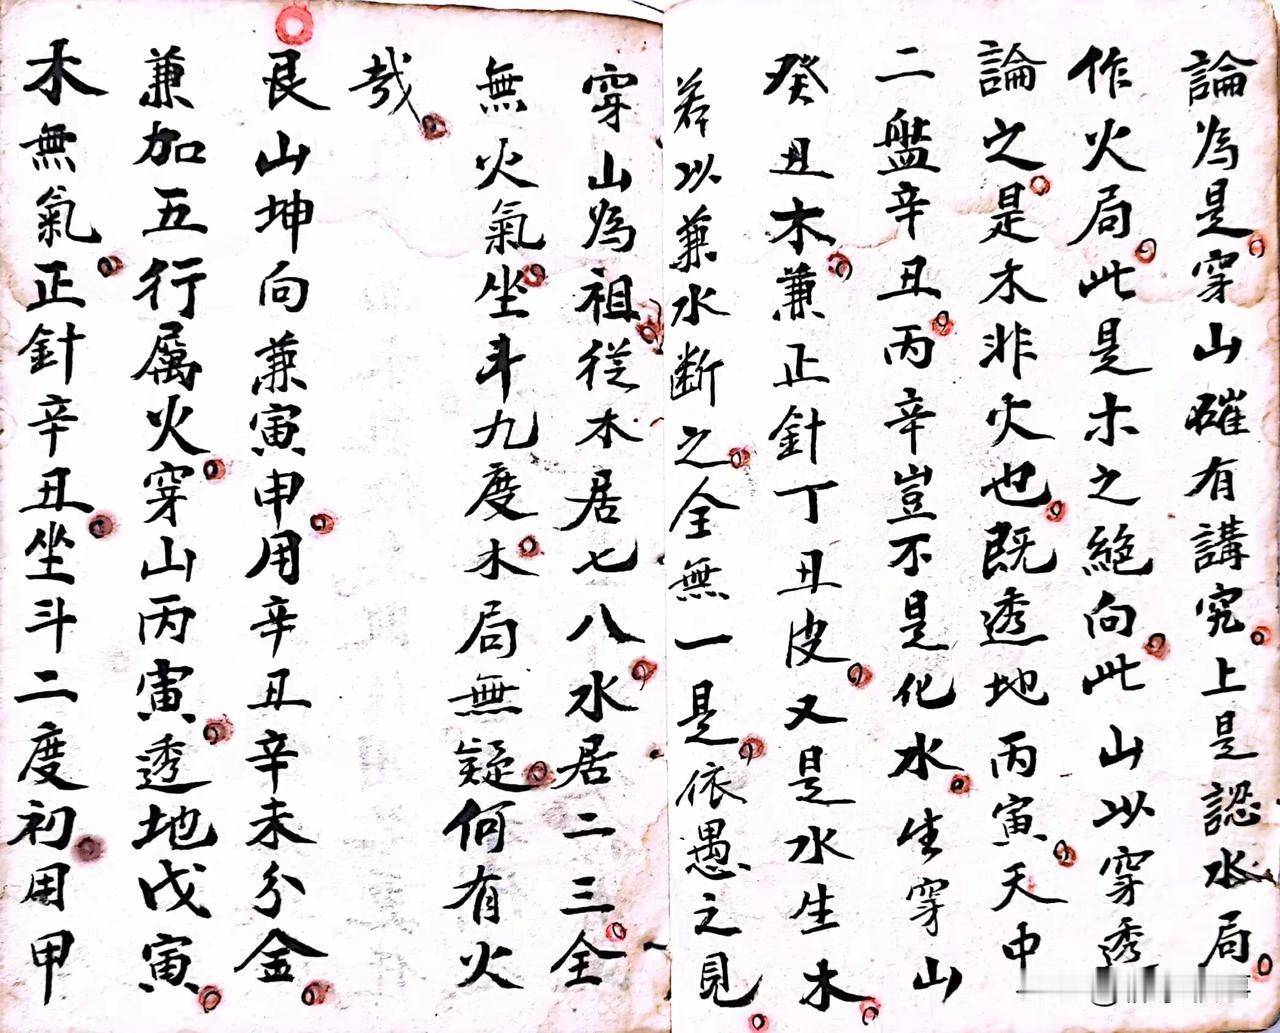 論為是穿山確有講究上是認水局
作火局此是木之絕向此山以穿透
論之是木非火也既透地丙寅天中
二盤辛丑丙辛豈不是化水生穿山
癸丑木兼正針丁丑皮又是水生木
若以兼水斷之全無一是依愚之見
穿山為祖從木居七八水居二三全
無火氣坐斗九度木局無疑何有火
哉
艮山坤向兼寅申用辛丑辛未分金
兼加五行屬火穿山丙寅透地戊寅
木無氣正針辛丑坐斗二度初用甲